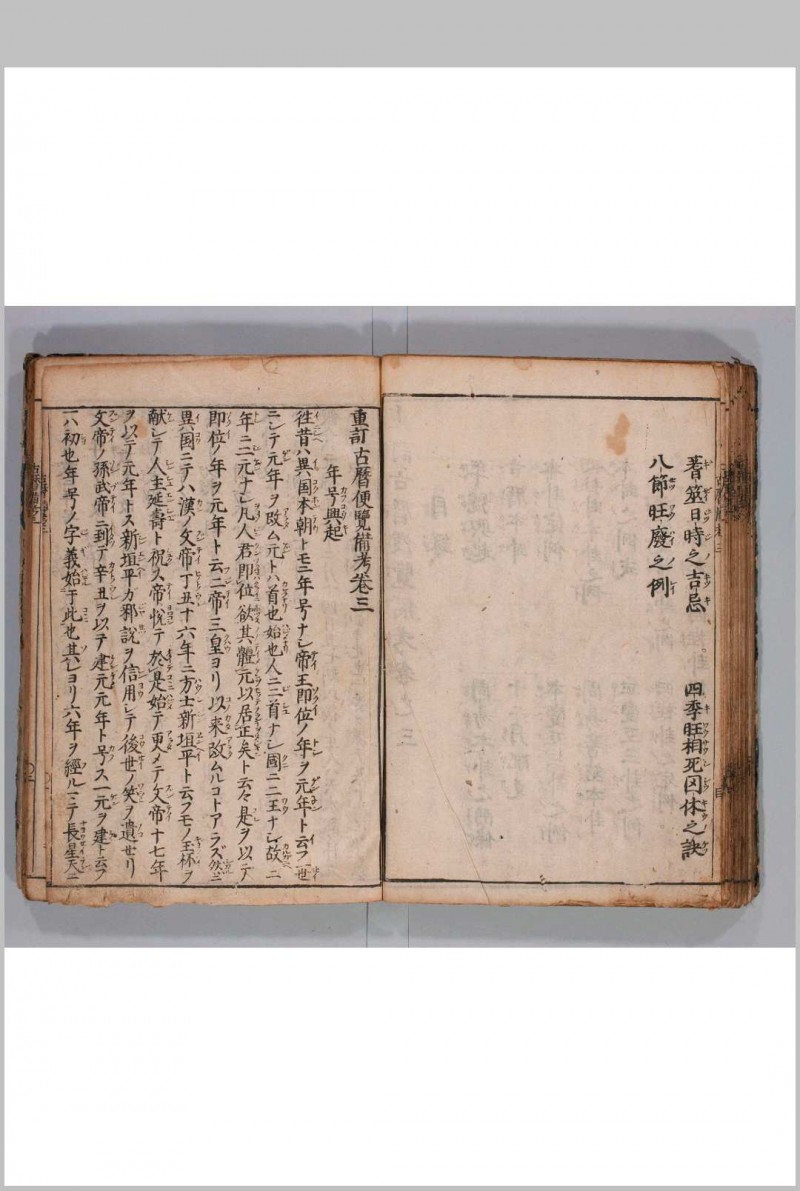 蓍筮日時之吉忌 四季旺相死囚休之訣
八節旺廢之例
重訂古暦便覧備考巻三
年号興起
往昔ハ異国本朝トモニ年号ナシ帝王即位ノ年ヲ元年ト云フ一世
ニシテ元年ヲ改ム元トハ首也始也人ニ二首ナシ國ニ二王ナシ故ニ
年ニ二元ナシ凡人君即位欲其體元以居正矣ト云々是ヲ以テ
即位ノ年ヲ元年ト云二帝三皇ヨリ以来改ムルコトアラズ然ニ
異国ニテハ漢ノ文帝丁丑十六年ニ方士新垣平ト云フモノ玉杯ヲ
献シテ人主延壽ト祝ス帝悦テ於是始テ更メテ文帝十七年
ヲ以テ元年トス新垣平カ邪説ヲ信用シテ後世ノ笑ヲ遺セリ
文帝ノ孫武帝ニ到テ辛丑ヲ以テ建元元年ト号ス一元ヲ建ト云フ
ハ初也年号ノ字義始于此也其レヨリ六年ヲ經ルニテ長星天ニ